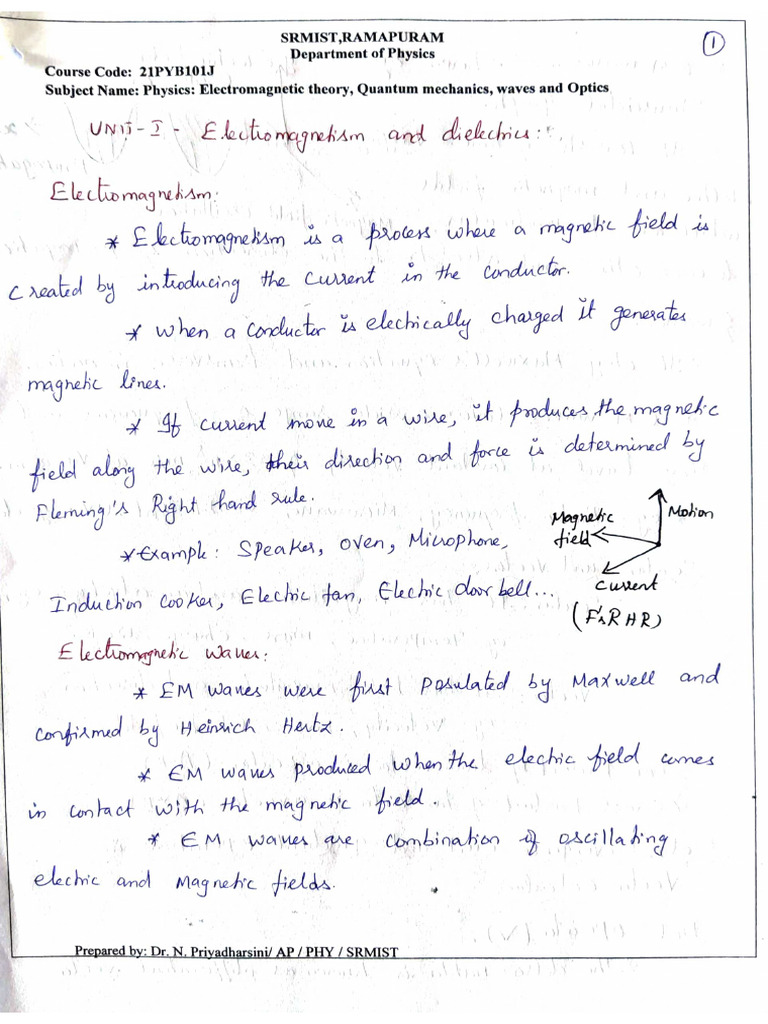 SRMIST,RAMAPURAM
1
Department of Physics
Course Code: 21PYB101J
Subject Name: Physics: Electromagnetic theory, Quantum mechanics, waves and Optics
UNIT-I - Electromagnetism and dielectrics:
Electromagnetism:
* Electromagnetism is a process where a magnetic field is
created by introducing the current in the conductor.
* when a conductor is electrically charged it generates
magnetic lines.
* If current move in a wire, it produces the magnetic
field along the wire, their direction and force is determined by
Fleming's Right hand rule.
* Example: Speaker, oven, Microphone,
Induction cooker, Electric fan, Electric door bell...
Magnetic
field
Motion
Current
(F's R H R)
Electromagnetic waves:
* EM waves were first Posulated by Maxwell and
confirmed by Heinrich Hertz.
* EM waves produced when the electric field comes
in contact with the magnetic field.
* EM waves are combination of oscillating
electric and Magnetic fields.
Prepared by: Dr. N. Priyadharsini/ AP / PHY / SRMIST